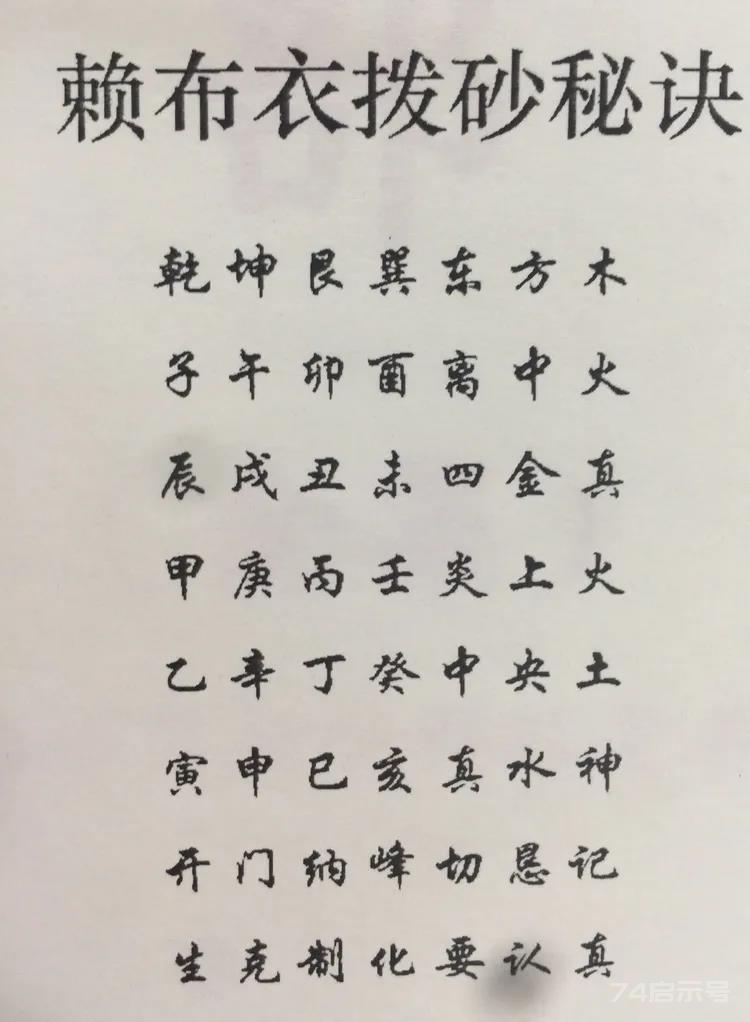 赖布衣拨砂秘诀
乾坤艮巽东方木
子午卯酉离中火
辰戌丑未四金真
甲庚丙壬炎上火
乙辛丁癸中央土
寅申巳亥真水神
开门纳峰切恳记
生克制化要认真
74启示号